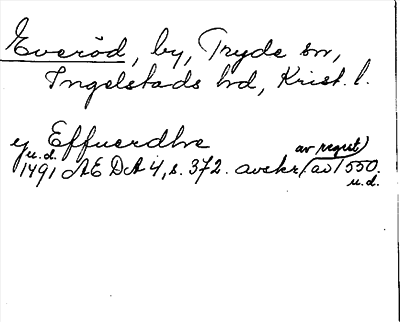 Everöd, by, Tryde sn,
Ingelstads hd, Krist. l.
y Effuerdhre
u.d. av regest)
1491 ÆDA 4, s. 372. avskr. (av 1550.
u.d.